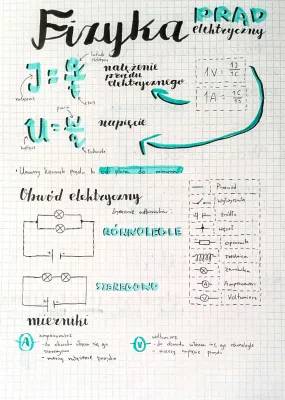 Fizyka
PRĄD
elektryczny
I = Q/t
natężenie
prądu
elektrycznego
1V = 1J/1C
1A = 1C/1s
U = W/q
napięcie
Umowny kierunek prądu to od plusa do minusa!
Obwód elektryczny
RÓWNOLEGŁE
SZEREGOWO
Przewód
wyłącznik
źródło
węzeł
opornik
żarówka
Amperomierz
Voltomierz
mierniki
A
amperomierz
- do obwodu włącza się go
szeregowo
- mierzy natężenie prądu
V
voltomierz
- do obwodu włącza się go równolegle
- mierzy napięcie prądu